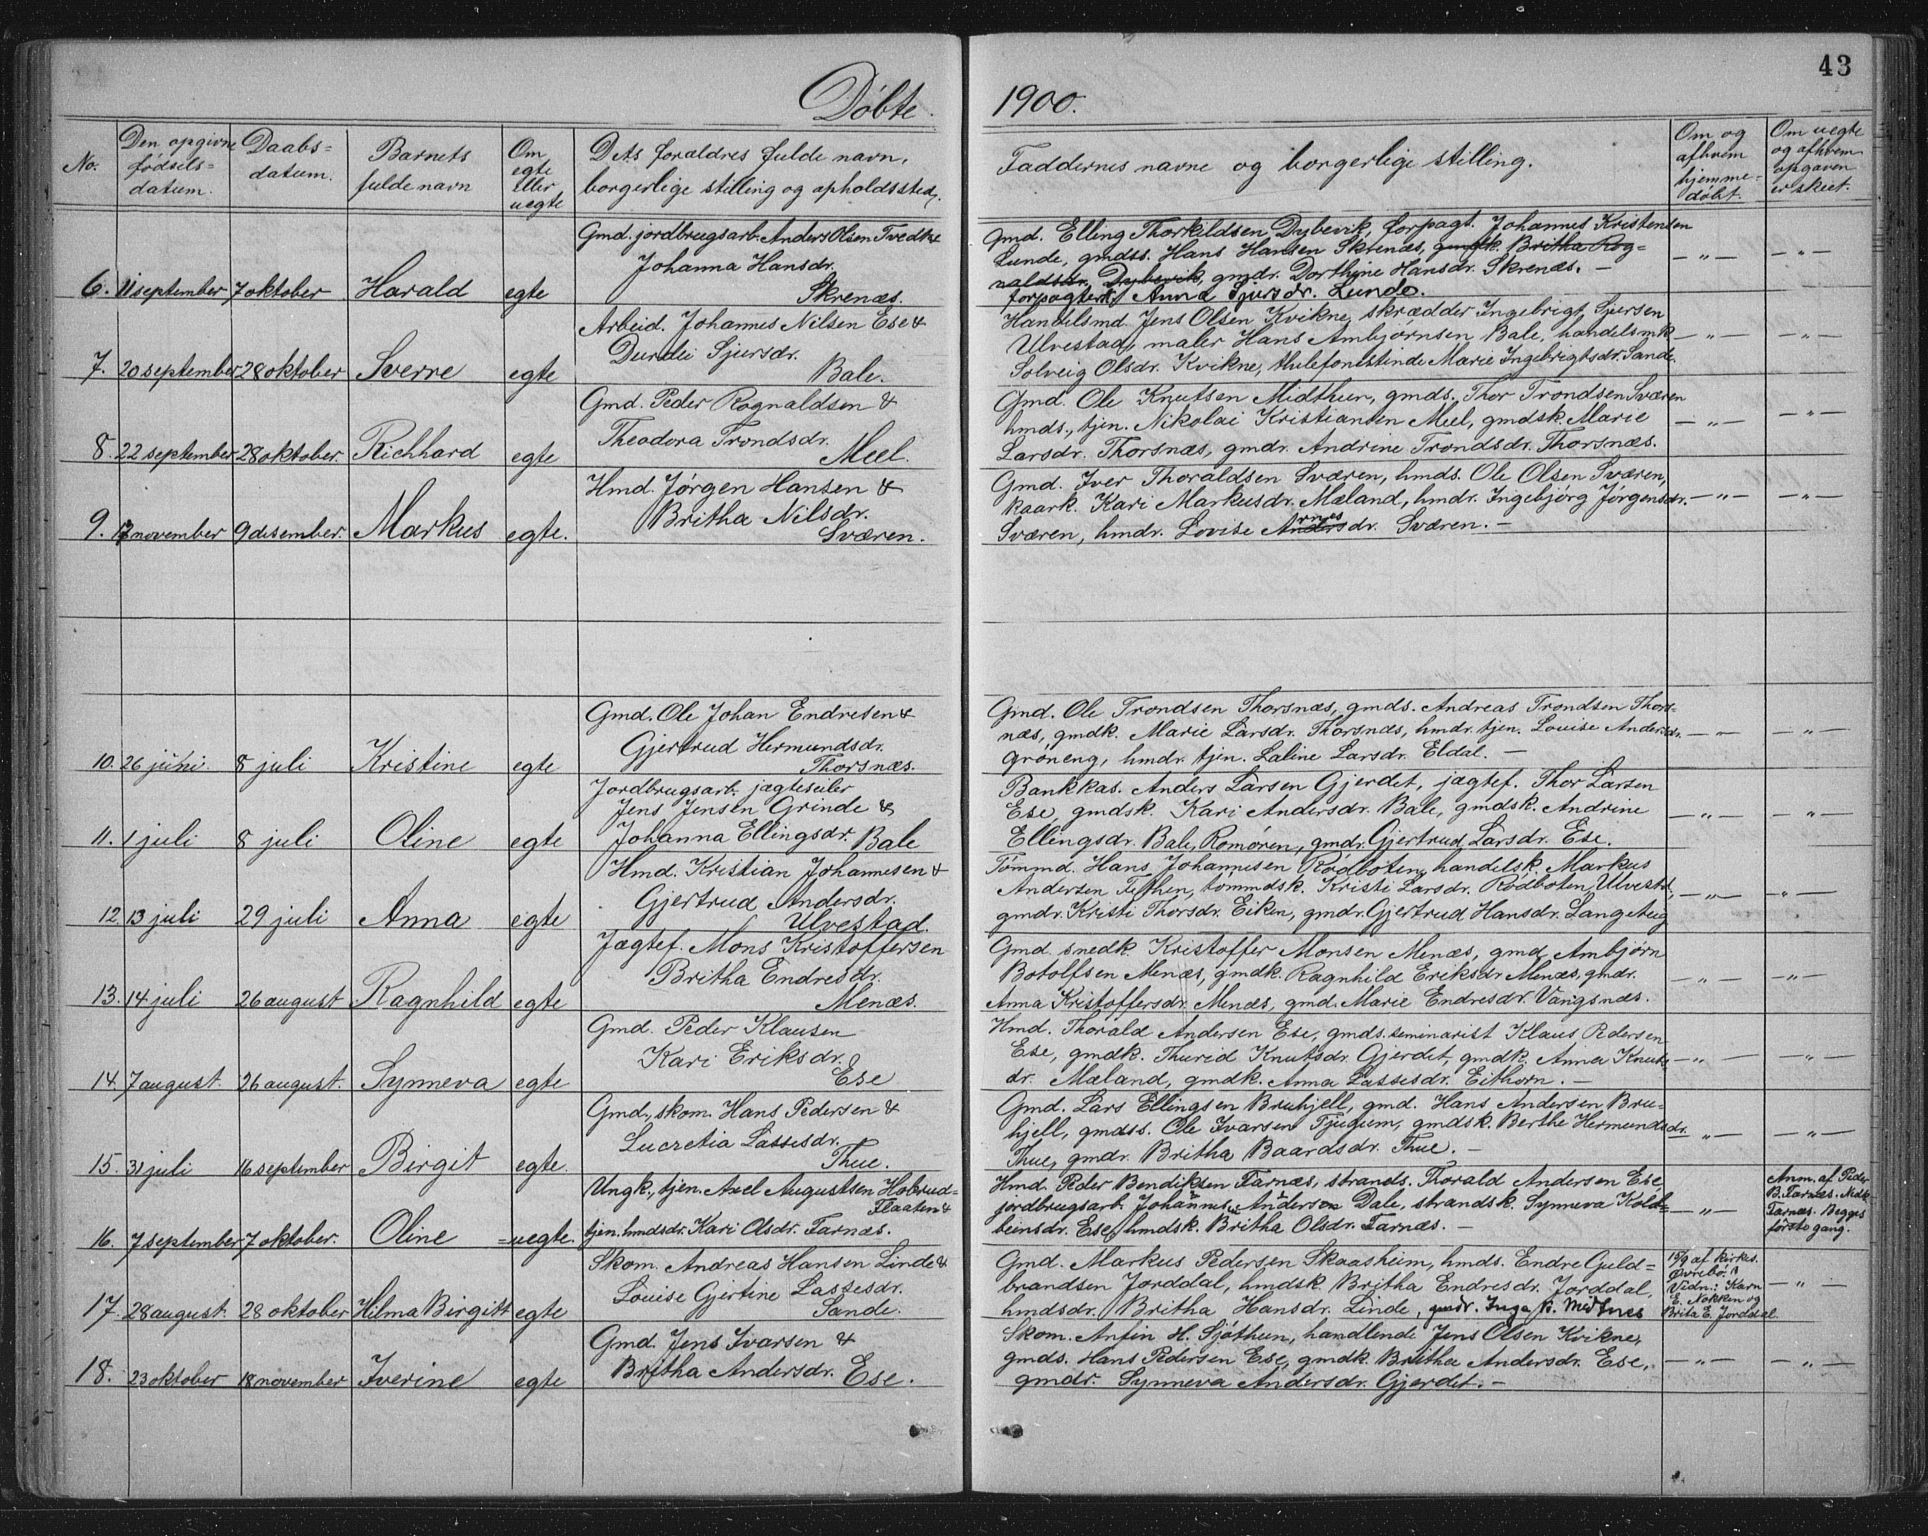 43
Døbte 1900.
No.
Den opgivne fødsels= datum.
Daabs= datum.
Barnets fulde navn
Om egte eller uegte
Dets forældres fulde navn, borgerlige stilling og opholdssted.
Faddernes navne og borgerlige stilling.
Om og afhvem hjemme= døbt.
Om uegte og afhvem opgaven er skeet.
6. 11 september 7 oktober Harald egte
Gmd. jordbrugsarb. Anders Olsen Tvedt &
Johanna Hansdr.
Skrenæs.
Gmd. Elling Thorkildsen Dybevik, forpagt. Johannes Kristensen
Lunde, gmdss. Hans Hansen Skrenæs, gmdk. Britha Rog=
naldsdr. Dybevik, gmdr. Dorthine Hansdr. Skrenæs. —
forpagterk. Anna Sjursdr. Lunde.
— „ — — „ —
7. 20 september 28 oktober Sverre egte
Arbeid. Johannes Nilsen Ese &
Durdei Sjursdr.
Bale.
Handelsmd. Jens Olsen Kvikne, skrædder Ingebrigt Sjursen
Ulvestad, maler Hans Ambjørnsen Bale, handelsmk.
Solveig Olsdr. Kvikne, Marie Ingebrigtsdr. Sande.
— „ — — „ —
8. 22 september 28 oktober. Richhard egte
Gmd. Peder Rognaldsen &
Theodora Trondsdr.
Meel.
Gmd. Ole Knutsen Midthun, gmds. Thor Trondsen Sværen
hmds., tjen. Nikolai Kristiansen Meel, gmdsk. Marie
Larsdr. Thorsnæs, gmdr. Andrine Trondsdr. Thorsnæs.
— „ — — „ —
9. 17 november 9 desember. Markus egte.
Hmd. Jørgen Hansen &
Britha Nilsdr.
Sværen.
Gmd. Iver Thoraldsen Sværen, hmds. Ole Olsen Sværen,
kaark. Kari Markusdr. Mæland, hmdr. Ingebjørg Jørgensdr.
Sværen, hmdr. Lovise Arnesdr. Sværen. —
— „ — — „ —
10. 26 juni. 8 juli Kristine egte
Gmd. Ole Johan Endresen &
Gjertrud Hermundsdr.
Thorsnæs.
Gmd. Ole Trondsen Thorsnæs, gmds. Andreas Trondsen Thors=
næs, gmdk. Marie Larsdr. Thorsnæs, hmdr. tjen. Louise Andersdr.
Grøneng, hmdr. tjen. Laline Larsdr. Eldal. —
— „ — — „ —
11. 1 juli 8 juli Oline egte
Jordbrugsarb. jægteseiler
Jens Jensen Grinde &
Johanna Ellingsdr. Bale
Bankkas. Anders Larsen Gjerdet, jægtef. Thor Larsen
Ese, gmdsk. Kari Andersdr. Bale, gmdsk. Andrine
Ellingsdr. Bale, Romøren, gmdr. Gjertrud Larsdr. Ese.
— „ — — „ —
12 13 juli 29 juli Anna egte
Hmd. Kristian Johannesen &
Gjertrud Andersdr.
Ulvestad.
Tømmd. Hans Johannesen Rødboten, handelsk. Markus
Andersen Tjethen, tømmdsk. Kristi Larsdr. Rødboten Ulvestd,
gmdr. Kristi Thorsdr. Eiken, gmdr. Gjertrud Hansdr. Langeteig
— „ — — „ —
13. 14 juli 26 august Ragnhild egte
Jægtef. Mons Kristoffersen
Britha Endresdr.
Menæs.
Gmd. snedk. Kristoffer Monsen Menæs, gmd. Ambjørn
Botolfsen Menæs, gmdk. Ragnhild Eriksdr. Menæs, gmdr.
Anna Kristoffersdr. Menæs, gmd. Marie Endresdr. Vangsnæs.
— „ — — „ —
14. 7 august. 26 august. Synneva egte
Gmd. Peder Klausen
Kari Eriksdr.
Ese
Hmd. Thorald Andersen Ese, gmds. seminarist Klaus Pedersen
Ese, gmdk. Thurid Knutsdr. Gjerdet, gmdk. Anna Knuts
dr. Mæland, gmdk. Anna Lassesdr. Eithorn. —
— „ — — „ —
15. 31 juli 16 september Birgit egte.
Gmd., skom. Hans Pedersen &
Lucretia Lassesdr.
Thue.
Gmd. Lars Ellingsen Bruhjell, gmd. Hans Andersen Bru=
hjell, gmdss. Ole Ivarsen Tjugum, gmdsk. Berthe Hermundsdr.
Thue, gmdr. Britha Baardsdr. Thue. —
— „ — — „ —
16. 7 september 7 oktober. Oline =uegte.
Ungk., tjen. Axel Augustsen Hobrud=
Flaaten &
tjen. hmdsdr. Kari Olsdr. Farnæs.
Hmd. Peder Bendiksen Farnæs, strands. Thorald Andersen Ese
jordbrugsarb. Johannes Andersen Dale, strandsk. Synneva Kold=
beinsdr. Ese, hmdsk. Britha Olsdr. Farnæs. —
— „ —
Anm. af Peder
B. Farnæs. Nedk.
Farnæs. Begges
første gang.
17. 28 august. 28 oktober Hilma Birgitt egte
Skom. Andreas Hansen Linde &
Louise Gjertine Lassesdr.
Sande.
Gmd. Markus Pedersen Skaasheim, hmds. Endre Guld=
brandsen Jorddal, hmdsk. Britha Endresdr. Jorddal,
hmdsdr. Britha Hansdr. Linde, gmdr. Inga P. Medfnes
15/9 af kirkes.
Øvrebø.
Vidn.: Karn
E. Nokken og
Brita E. Jorddal.
— „ —
18. 23 oktober 18 november Iverine egte
Gmd. Jens Ivarsen &
Britha Andersdr. Ese.
Skom. Anfin H. Sjøthun, handlende Jens Olsen Kvikne,
gmds. Hans Pedersen Ese, gmdk. Britha Andersdr. Ese,
gmdr. Synneva Andersdr. Gjerdet. —
— „ — — „ —